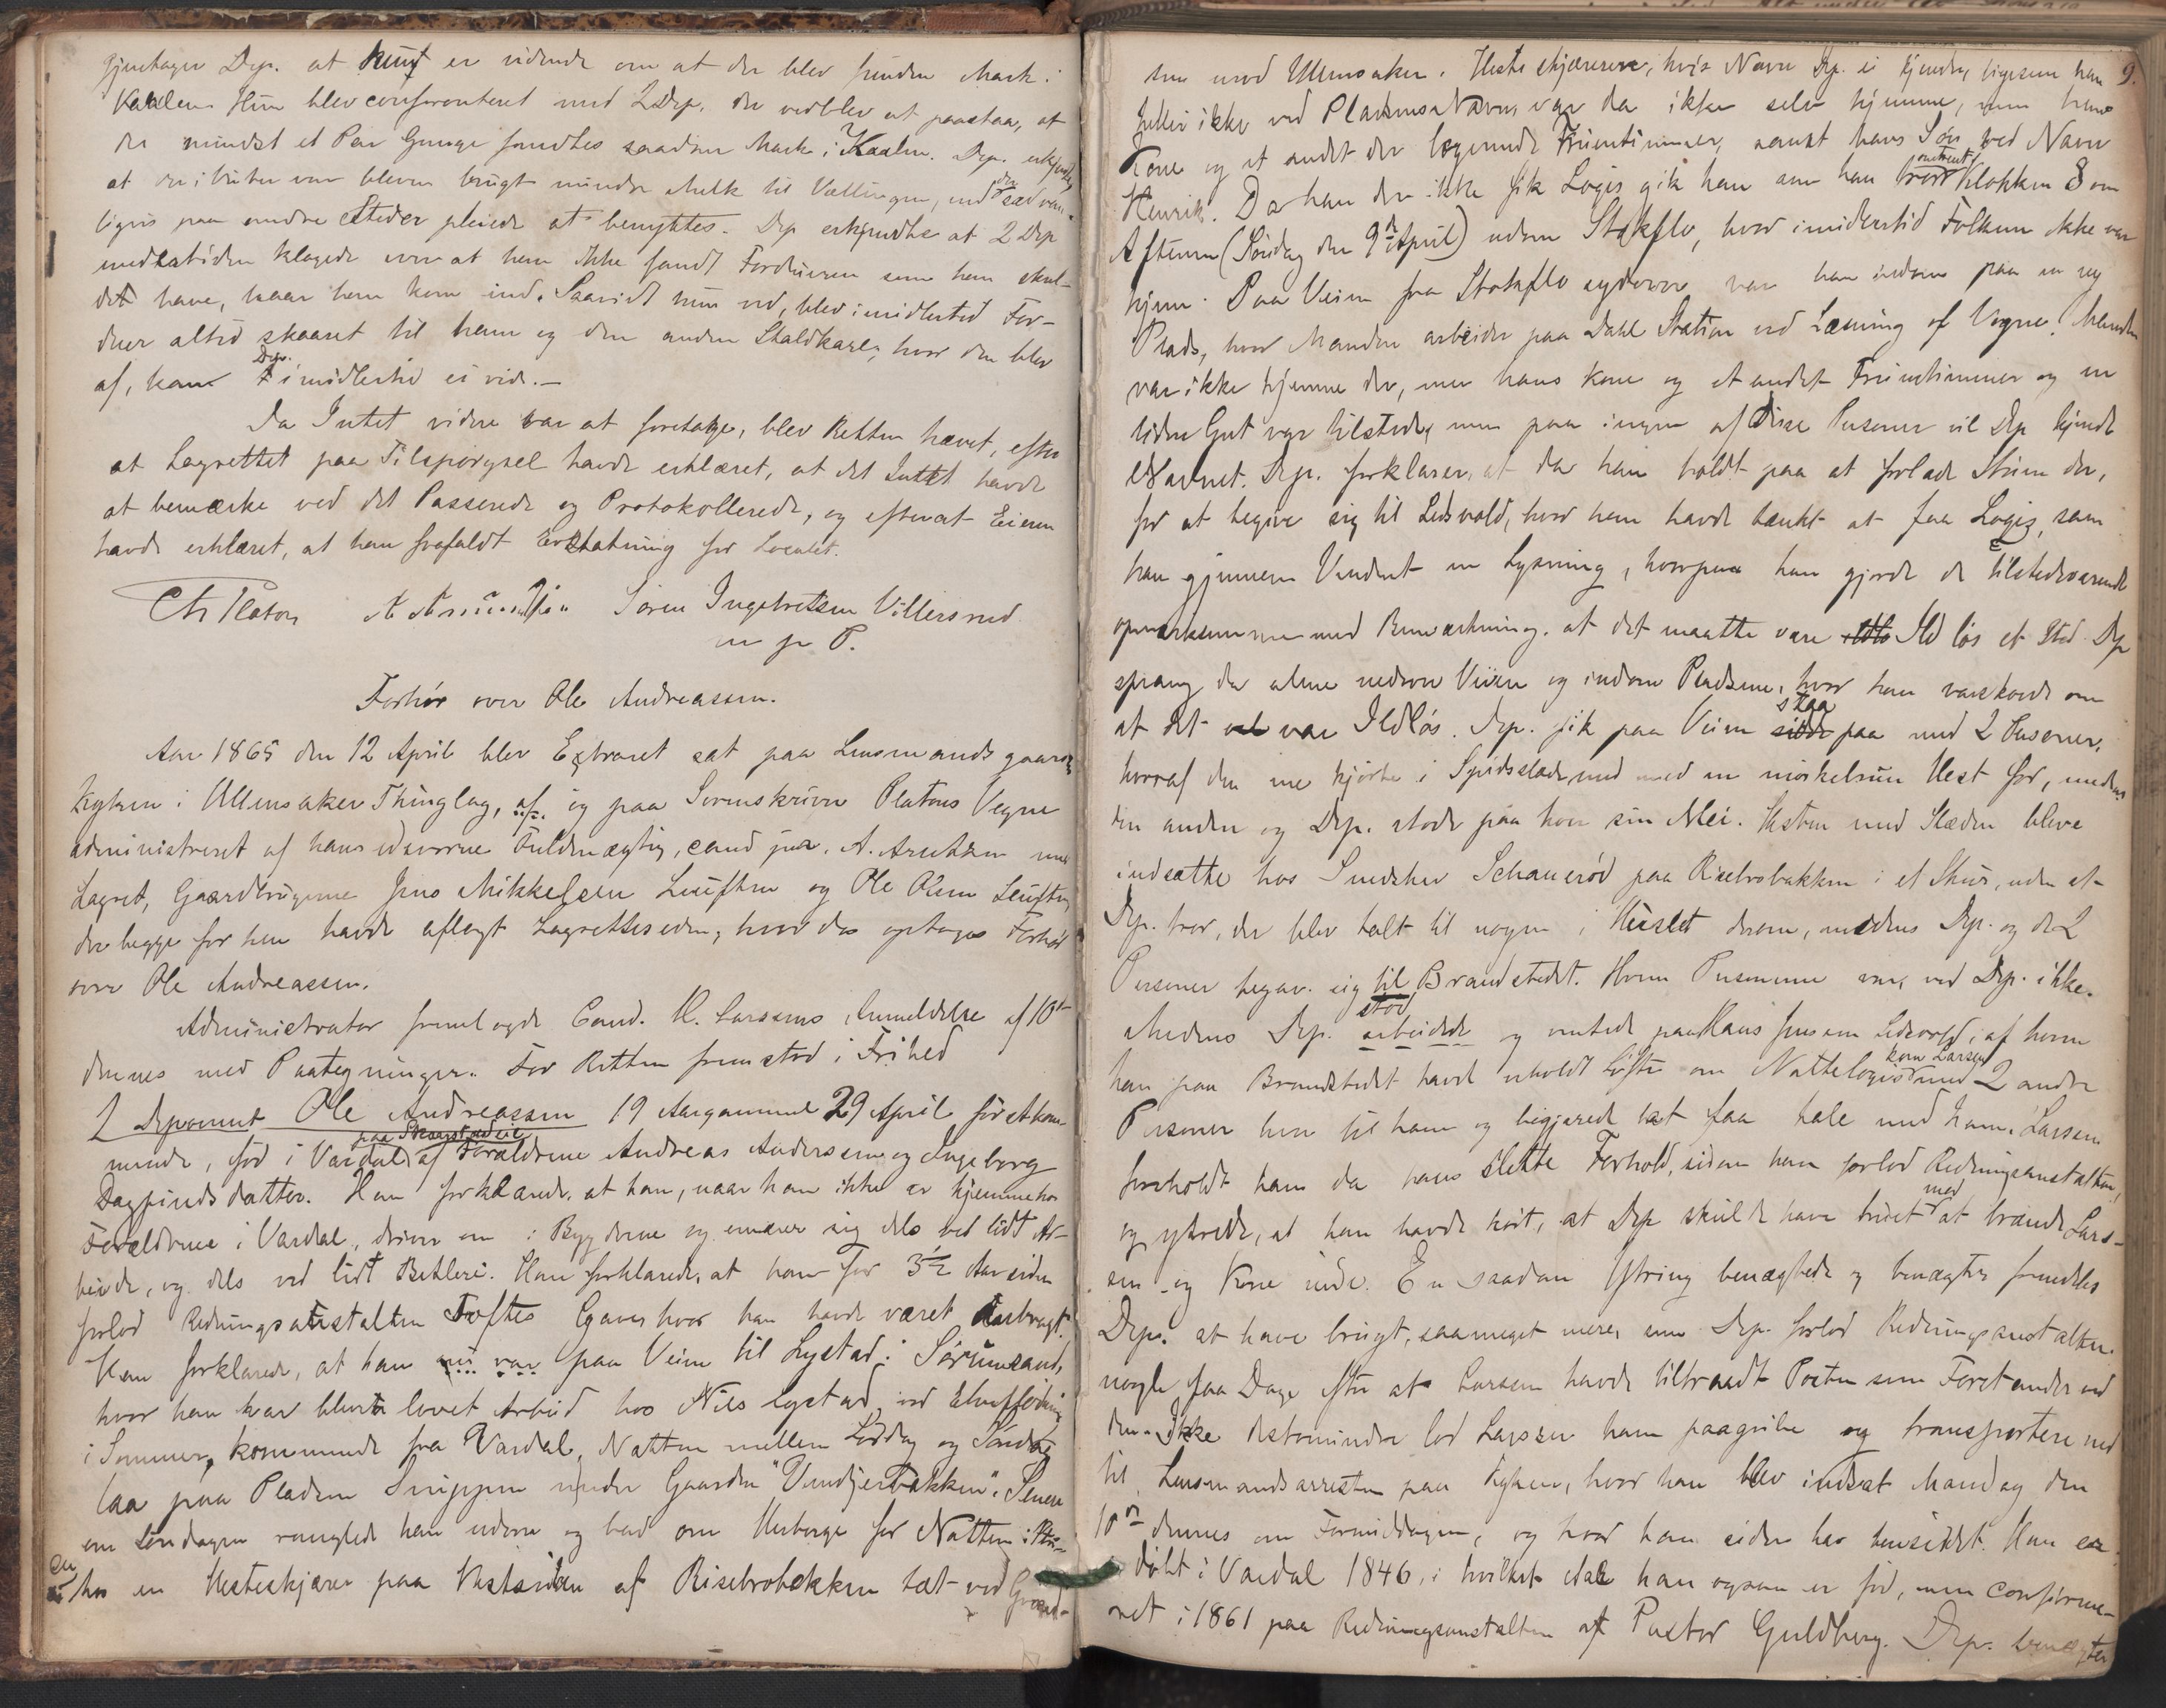 gjentager Dep. at hun er vidende om at der blev funden Mark i
Kaalen. Hun blev confronteret med 2 Dep. der vedblev at paastaa, at
der mindst et Par Gange fandtes saadan Mark i Kaalen. Dep. erkjender
at der i Huset var bleven brugt mindre Melk til Vællingen, end der sædvan-
ligvis paa andre Steder pleiede at benyttes. Dep erkjendte at 2 Dep
imedlertiden klagede over at han ikke fandt Forduren som han skul-
det have, naar han kom ind. Saavidt hun ved, blev imidlertid For-
duer altid skaaret til ham og den anden Staldkarl, hvor den blev
af, kan Dep. imidlertid ei vide.—
Da Intet videre var at foretage, blev Retten hævet, efter
at Lagrettet paa Tilspørgsel havde erklæret, at det Intet havde
at bemærke ved det Passerede og Protokollerede, og efterat Eieren
havde erklæret, at han frafaldt Erstatning for Localet.
Chr Platou Søren Ingebretsen Villersrud
m p P.
Forhør over Ole Andreassen.
Aar 1865 den 12 April blev Extraret sat paa Lensmandsgaarden
Kyken i Ullensaker Thinglag, af og paa Sorenskriver Platous Vegne
administreret af hans edsvorne Fuldmægtig, cand jur. A. Arentzen med
Lagret, Gaardbrugerne Jens Mikkelsen Leufsten og Ole Olsen Leufsten
der begge før hen havde aflagt Lagrettes eden, hvor da optoges Forhør
over Ole Andreassen.
Administrator fremlagde Cand. H. Larsens Anmeldelse af 10de
dennes med Paategninger. For Retten fremstod i Frihed
1 Deponent Ole Andreassen 19 Aar gammel 29 April førstkom-
mende, født i Vardal paa Skarstadeie af Forældrene Andreas Anderssen og Ingeborg
Dagfindsdatter. Han forklarede, at han, naar han ikke er hjemme hos
Forældrene i Vardal, driver om i Bygderne og ernærer sig dels ved lidt Ar-
beide, og dels ved lidt Betleri. Han forklarede, at han for 3½ Aar siden
forlod Redningsanstalten Toftes Gave, hvor han havde været anbragt.
Han forklarede, at han nu var paa Veien til Lystad i Sørumsand,
hvor han var bleven lovet Arbeid hos Nils Lystad ved Elvefløtning
i Sommer, kommende fra Vardal. Natten mellem Lørdag og Søndag
laa paa Pladsen Snippen under Gaarden "Vendjerbakken". Senere
om Søndagen ranglede han udover og bad om Herberge for Natten
hos en Hesteskjærer paa Vestsiden af Risebrobakken tæt ved Grænd-
9.
sen mod Ullensaker. Hesteskjæreren, hvis Navn Dep. ei kjender, ligesom han
heller ikke ved Pladsens Navn, var da ikke selv hjemme, men hans
Kone og et andet der logerende Fruentimmer, samt hans Søn ved Navn
Henrik. Da han der ikke fik Logis gik han som han tror omtrent Klokken 8 om
Aftenen (Søndag den 9de April) udom Stokflo, hvor imidlertid Folkene ikke var
hjem. Paa Veien fra Stokflo sydover var han indom paa en ny
Plads, hvor Manden arbeider paa Dahl Station ved Læsning af Vogne. Manden
var ikke hjemme der, men hans Kone og et andet Fruentimmer og en
liden Gut var tilstede, men paa ingen af disse Personer vil Dep kjende
Navnet. Dep. forklarer, at da han holdt paa at forlade Stuen der,
for at begive sig til Lidsvold, hvor han havde tænkt at faa Logis, saa
han gjennem Vinduet en Lysning, hvorpaa han gjorde de tilstedeværende
opmærksomme med Bemærkning, at det maatte være Ild løs et Sted. Dep
sprang da alene nedover Veien og indom Pladsene, hvor han varskoede om
at det var Ildløs. Dep. fik paa Veien staa paa med 2 Personer,
hvoraf den ene kjørte i Spidsslæde med en mørkebrun Hest for, medens
den anden og Dep. stode paa hver sin Mei. Hesten med Slæden bleve
indsatte hos Smedshu Schauerød paa Risebrobakken i et Skur, uden at
Dep. tror, der blev talt til nogen i Huset derom, medens Dep. og de 2
Personer begav sig til Brandstedet. Hvem Personerne var, ved Dep. ikke.
Medens Dep. stod arbeidede og ventede paa Hans Jensen Lidsvold, af hvem
han paa Brandstedet havde erholdt Løfte om Nattelogis kom Larsen med 2 andre
Personer hen til ham og begjærede at faa tale med ham. Larsen
foreholdt ham da hans slette Forhold, siden han forlod Redningsanstalten,
og ytrede, at han havde hørt, at Dep skulde have truet med at brænde Lars-
sen og Kone inde. En saadan Ytring benægtede og benægter fremdeles
Dep. at have brugt, saameget mere som Dep. forlod Redningsanstalten
nogle faa Dage efter at Larsen havde tiltraadt Posten som Forstander ved
den. Ikke destomindre lod Larsen ham paagribe og transportere ned
til Lensmandsarresten paa Kyken, hvor han blev indsat Mandag den
10de dennes om Formiddagen, og hvor han siden har hensiddet. Han er
døbt i Vardal 1846, i hvilket Aar han ogsaa er fød, men confirme-
ret i 1861 paa Redningsanstalten af Pastor Guldberg. Dep. benægter